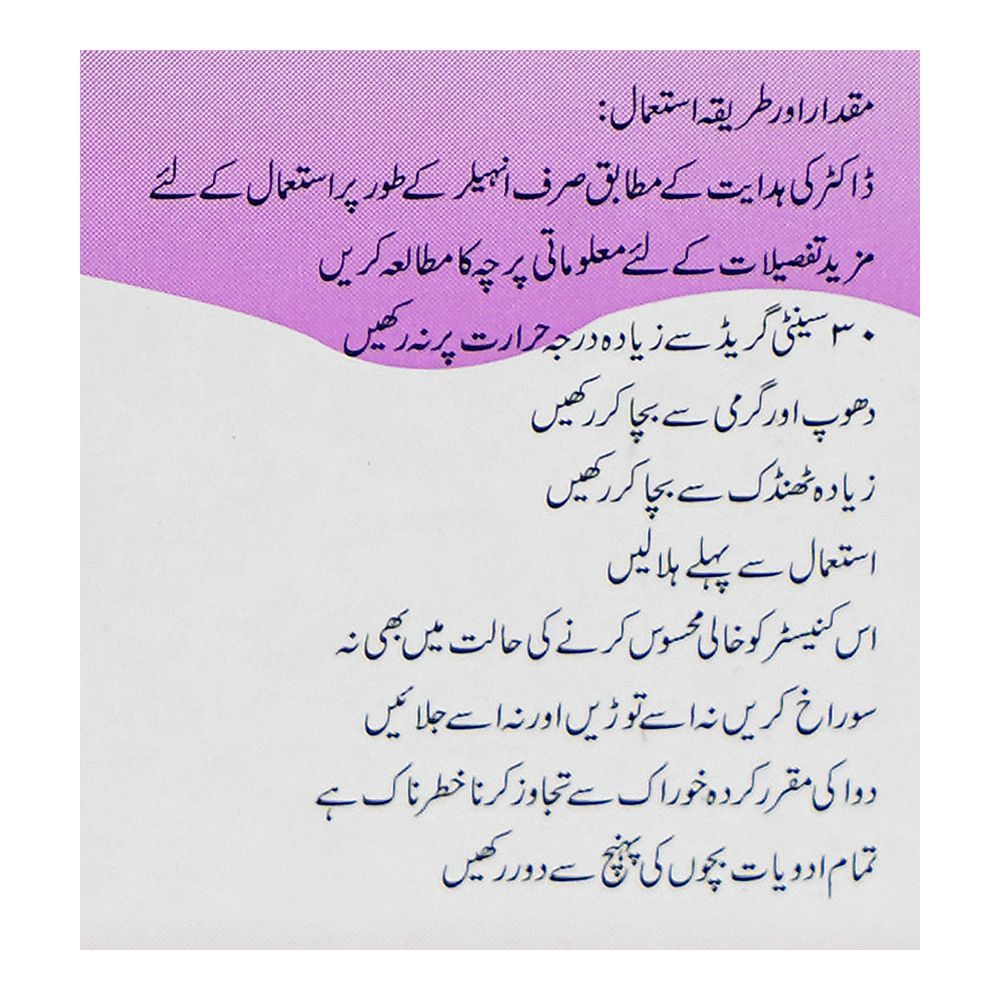 مقدار اور طریقہ استعمال:
ڈاکٹر کی ہدایت کے مطابق صرف انہیلر کے طور پر استعمال کے لئے
مزید تفصیلات کے لئے معلوماتی پرچہ کا مطالعہ کریں
۳۰ سینٹی گریڈ سے زیادہ درجہ حرارت پر نہ رکھیں
دھوپ اور گرمی سے بچا کر رکھیں
زیادہ ٹھنڈک سے بچا کر رکھیں
استعمال سے پہلے ہلا لیں
اس کنیسٹر کو خالی محسوس کرنے کی حالت میں بھی نہ
سوراخ کریں نہ اسے توڑیں اور نہ اسے جلائیں
دوا کی مقرر کردہ خوراک سے تجاوز کرنا خطرناک ہے
تمام ادویات بچوں کی پہنچ سے دور رکھیں